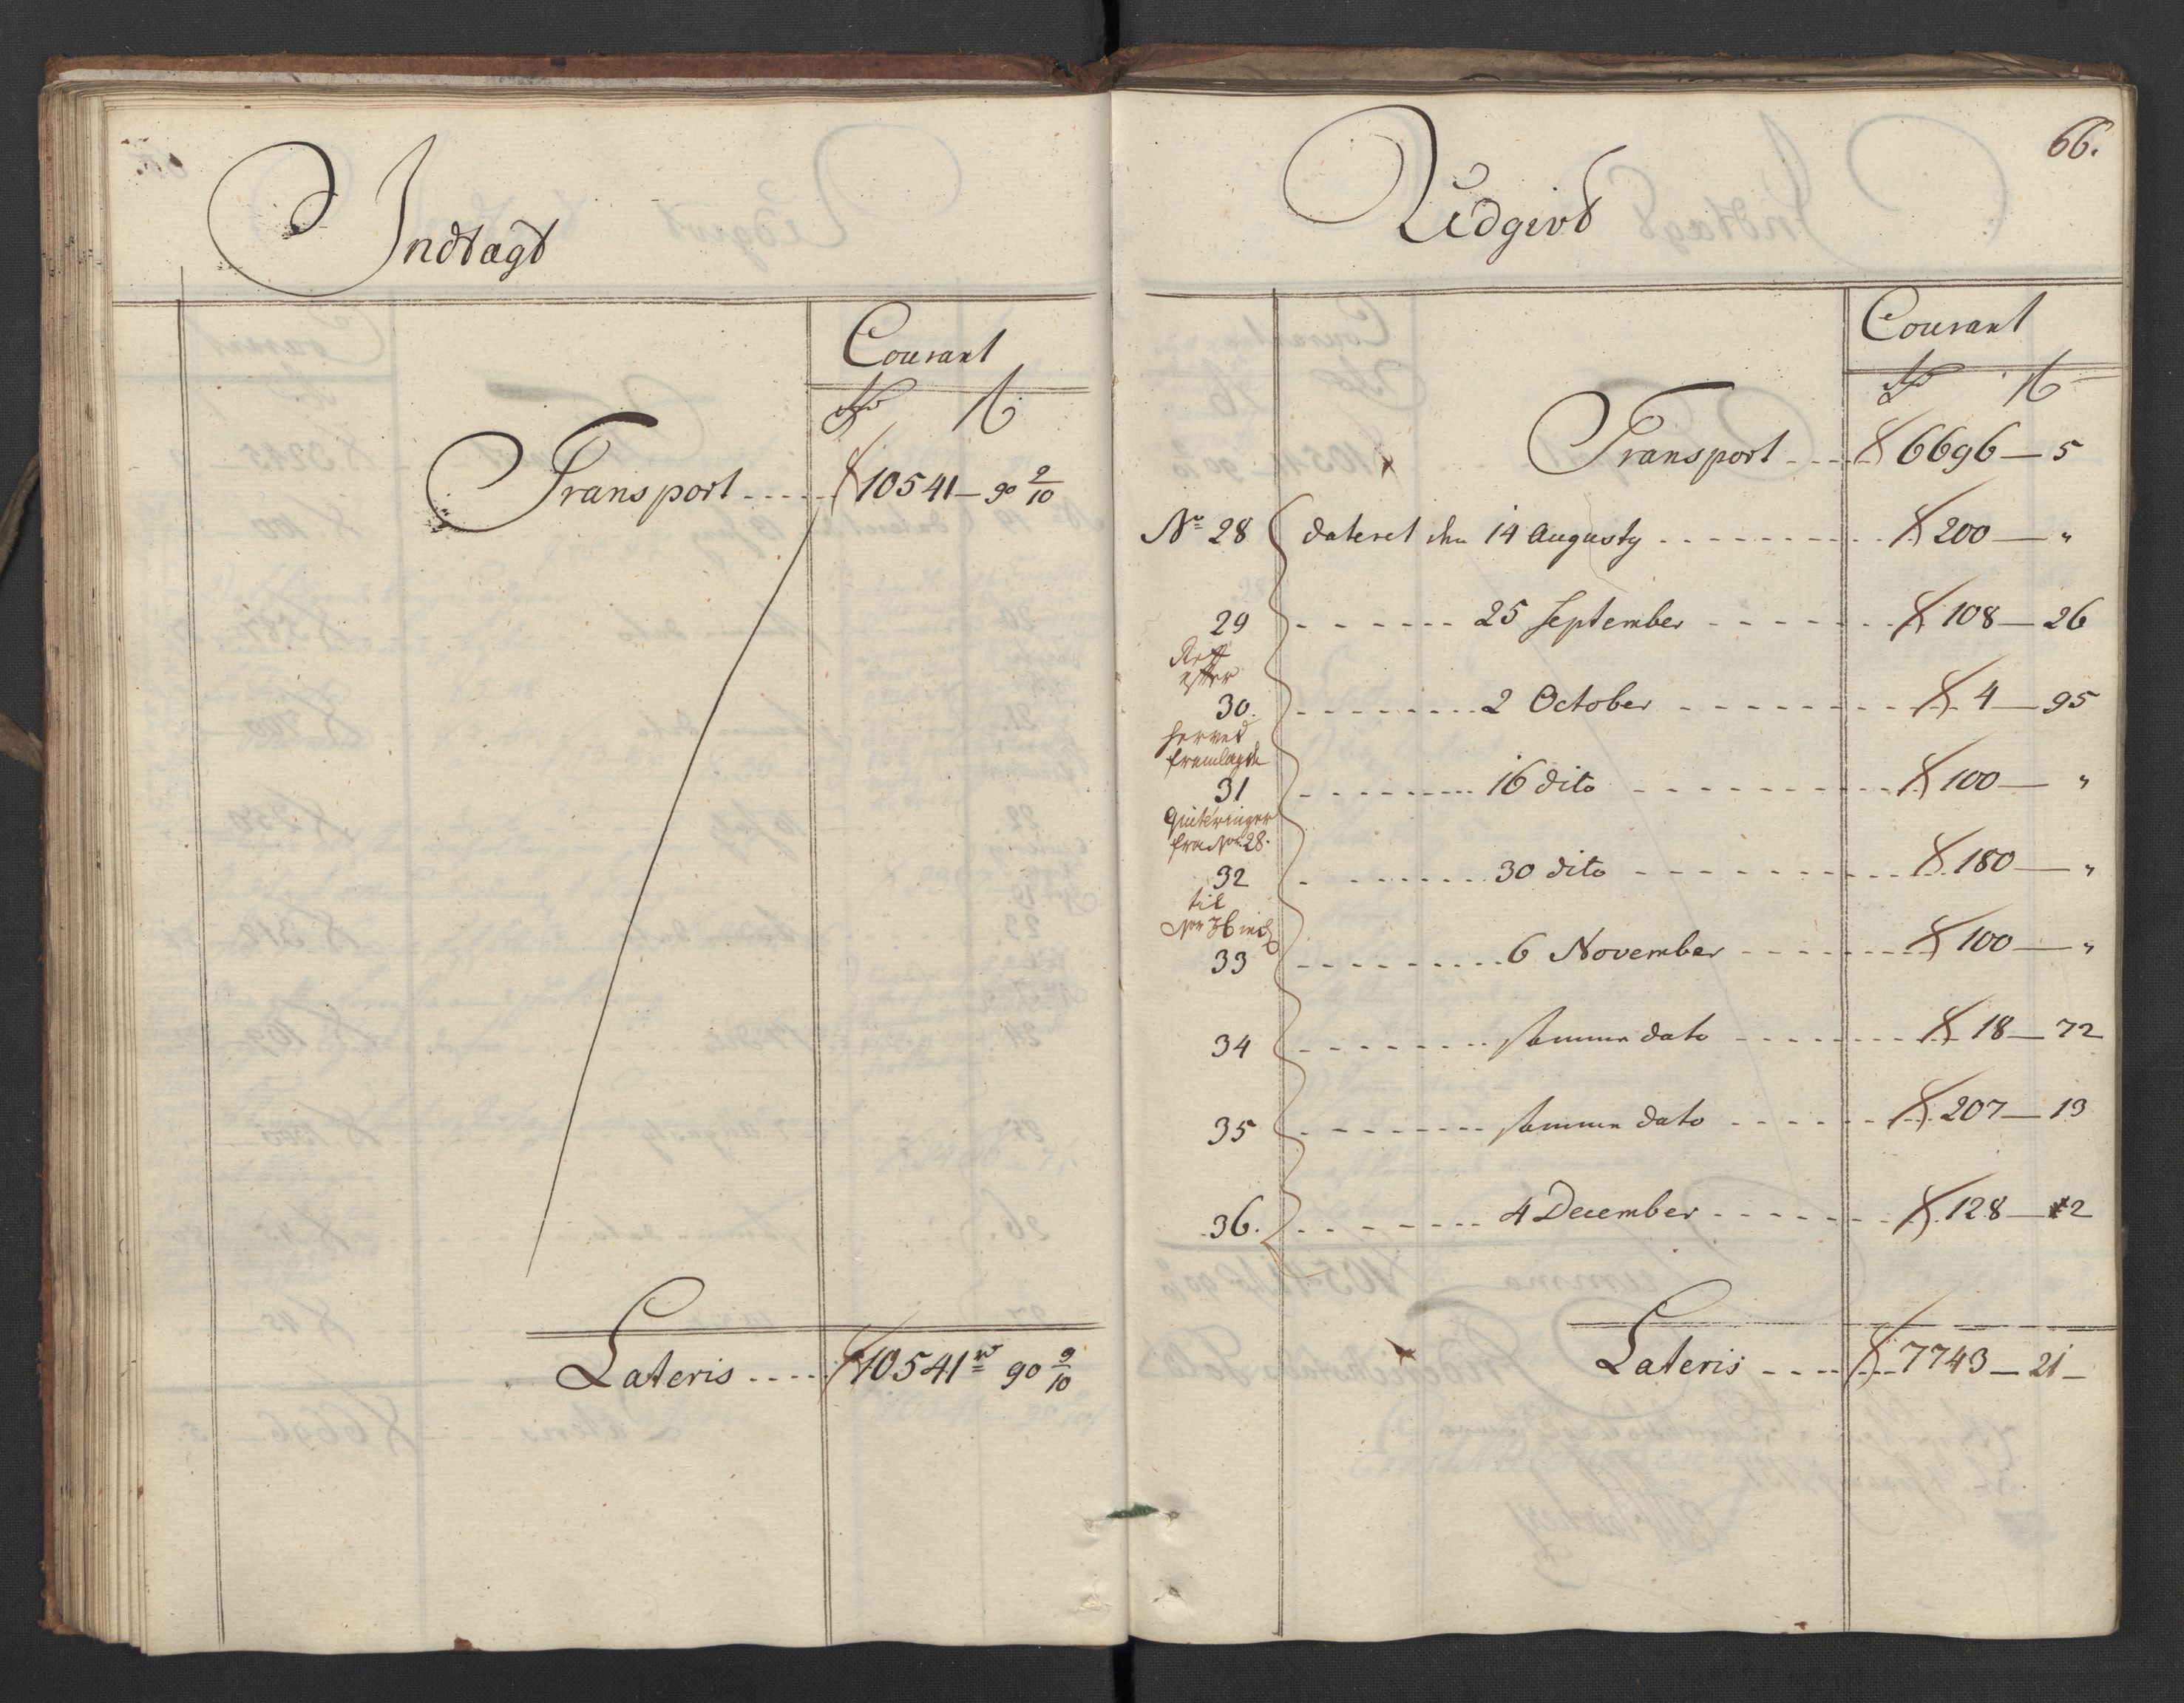 Indtægt
Courant
Rd ß
Transport ..... 10541 — 90 9/10
Lateris .... 10541 rd 90 9/10
66.
Udgivt
Courant
Rd ß
Transport .... 6696 — 5
No 28 dateret den 14 Augusty ........ 200 — "
29 ...... 25 September ...... 108 — 26
Reff
efter
30. ........ 2 October ........ 4 — 95
herved
fremlagde
31 ........ 16 dito ........ 100 — "
Quiteringer
fra No 28.
32 ........ 30 dito ........ 180 — "
til
No 36 incl
33 ........ 6 November ........ 100 — "
34 ........ samme dato ........ 18 — 72
35 ........ samme dato ........ 207 — 13
36. ........ 4 December ........ 128 — 2
Lateris .... 7743 — 21 —